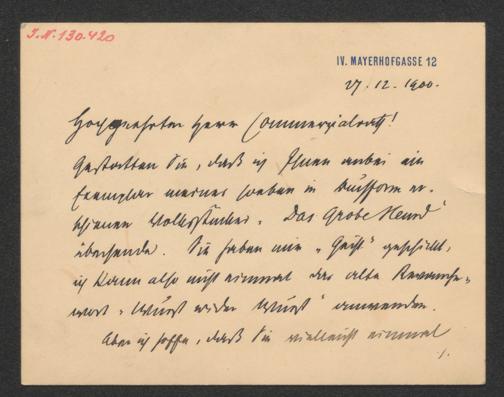 I.N. 130.420
IV. MAYERHOFGASSE 12
27. 12. 1900.
Hochgeehrter Herr Commerzialrath!
Gestatten Sie, daß ich Ihnen anbei ein
Exemplar meines soeben in Buchform er-
schienenen Volksstückes „Das Grobe Hemd"
übersende. Sie haben mir „Geist" geschickt,
ich kann also nicht einmal das alte Revanche-
wort „Wurst wider Wurst" anwenden.
Aber ich hoffe, daß Sie vielleicht einmal